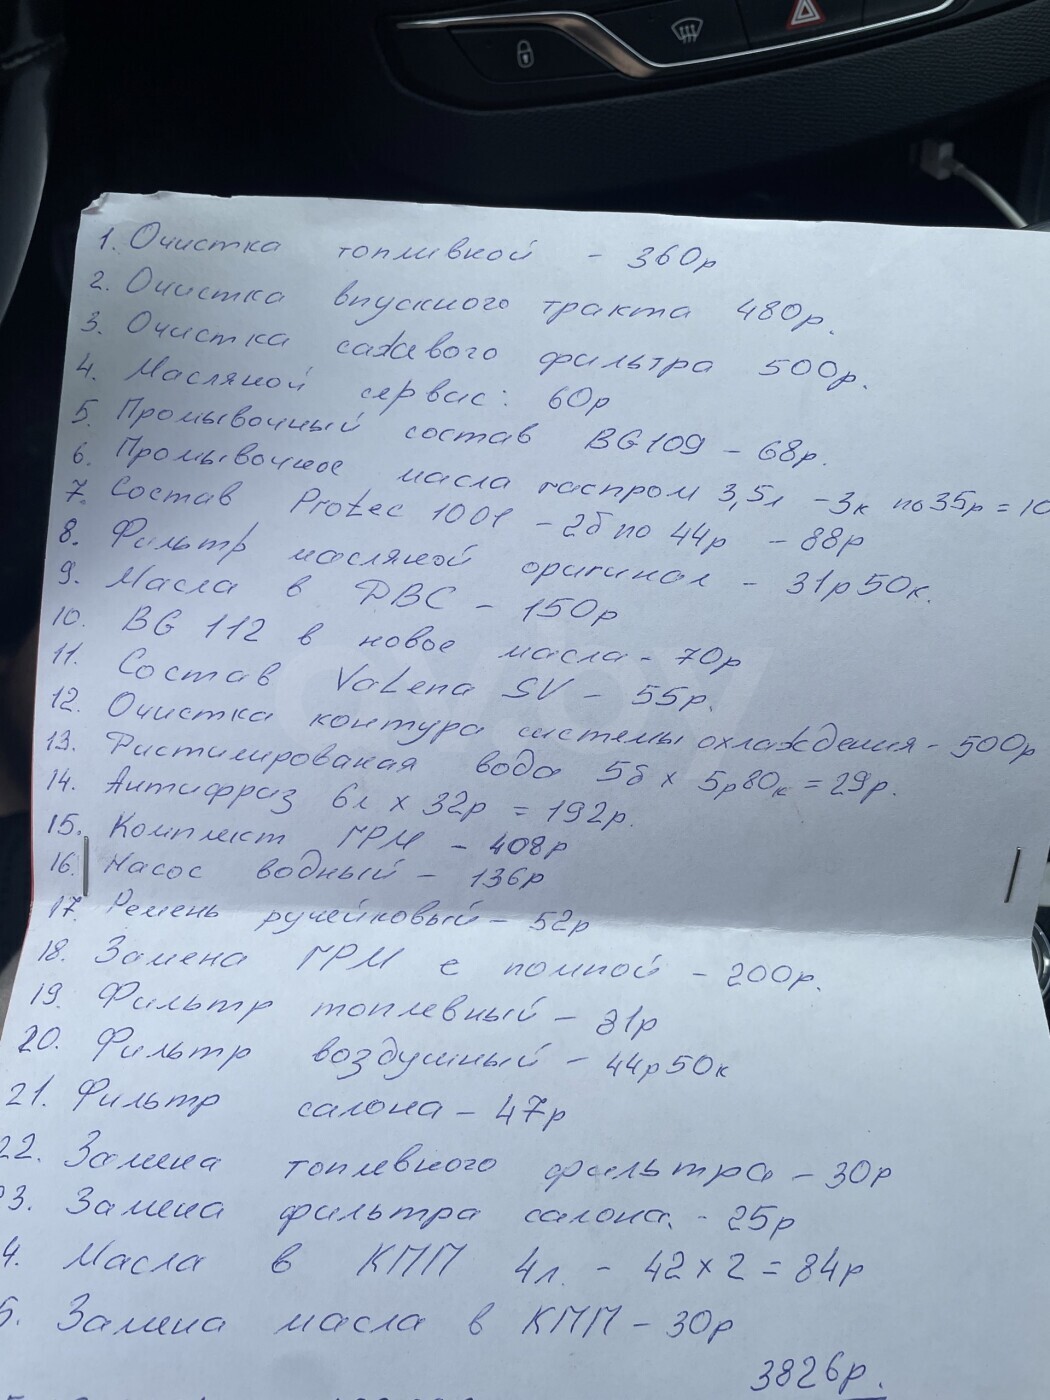 1. Очистка топливной - 360р
2. Очистка впускного тракта 480р.
3. Очистка сажевого фильтра 500р.
4. Масляной сервис: 60р
5. Промывочный состав BG109 - 68р.
6. Промывочное масла гаспром 3,5л - 3к по 35р = 10
7. Состав Protec 1001 - 2б по 44р - 88р
8. Фильтр масляной оригинал - 31р50к.
9. Масла в ДВС - 150р
10. BG 112 в новое масла - 70р
11. Состав VaLena SV - 55р.
12. Очистка контура системы охлаждения - 500р
13. Дистилированая вода 5б х 5р80к = 29р.
14. Антифраз 6л х 32р = 192р.
15. Комплект ГРМ - 408р
16. Насос водный - 136р
17. Ремень ручейковый - 52р
18. Замена ГРМ с помпой - 200р.
19. Фильтр топлевный - 31р
20. Фильтр воздушный - 44р50к
21. Фильтр салона - 47р
22. Замена топлевного фильтра - 30р
23. Замена фильтра салона. - 25р
4. Масла в КПП 4л. - 42 х 2 = 84р
5. Замена масла в КПП - 30р
3826р.